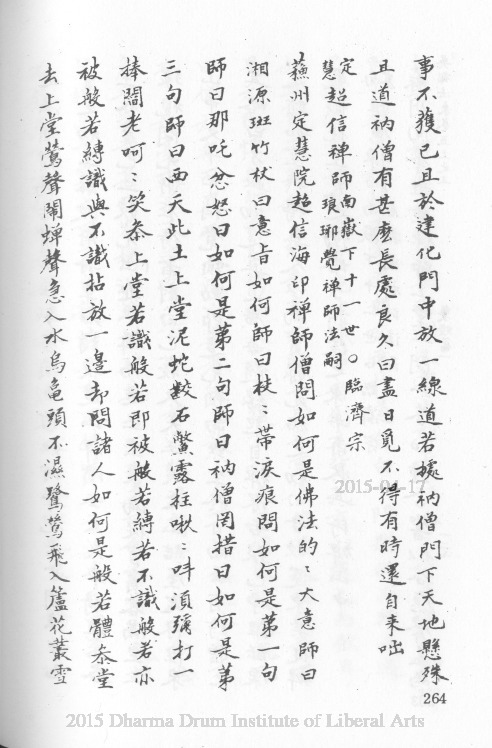 事不獲已且於建化門中放一線道若據衲僧門下天地懸殊
且道衲僧有甚麼長處良久曰盡日覓不得有時還自来咄
定慧超信禪師南嶽下十一世○臨濟宗
瑯琊覺禪師法嗣
蘓州定慧院超信海印禪師僧問如何是佛法的〻大意師曰
湘源斑竹杖曰意旨如何師曰枝〻帶淚痕問如何是第一句
師曰那吒忿怒曰如何是第二句師曰衲僧罔措曰如何是第
三句師曰西天此土上堂泥蛇齩石鱉露柱啾〻呌須彌打一
棒閻老呵〻笑叅上堂若識般若即被般若縛若不識般若亦
被般若縛識與不識拈放一邊却問諸人如何是般若體叅堂
去上堂鶯聲闌蟬聲急入水烏龜頭不濕鷺鶿飛入蘆花叢雪
264
2015-04-17
2015 Dharma Drum Institute of Liberal Arts